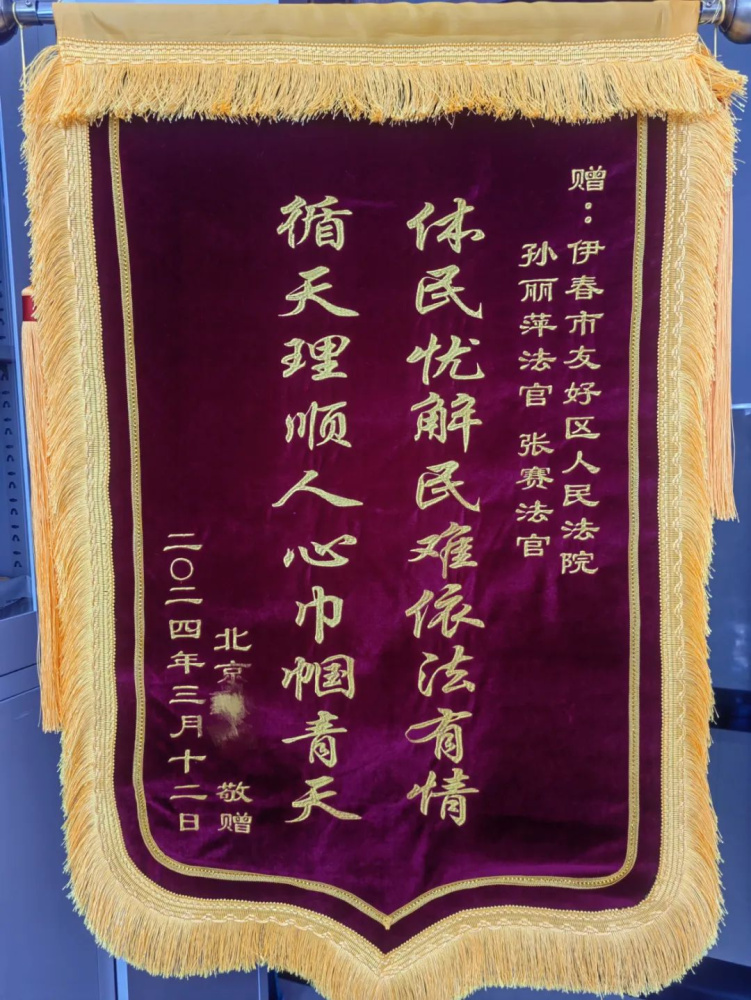 赠：伊春市友好区人民法院
孙丽萍法官 张赛法官
体民忧解民难依法有情
循天理顺人心巾帼青天
北京 敬赠
二〇二四年三月十二日